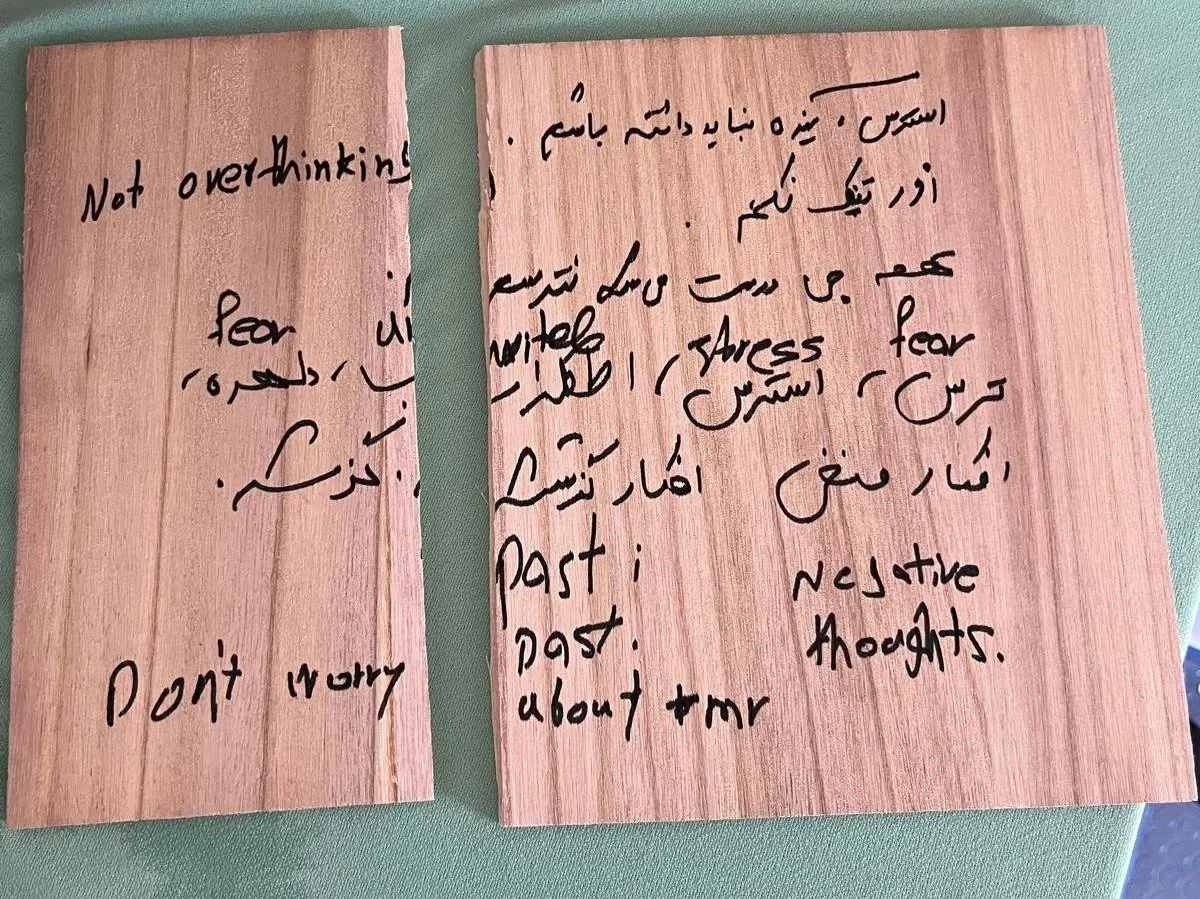 استرس . نباید داشته باشم .
Not overthinking
اور تینک نکنم .
همه چی درست میشه نترسم
fear stress
fear
ترس ، استرس ، اضطراب ، دلهره ،
افکار منفی افکار گذشته
گذشته .
past ; Negative
past . thoughts.
Don't worry about tmr